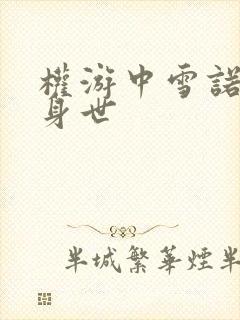 權游中雪諾
身世
半城繁華煙半